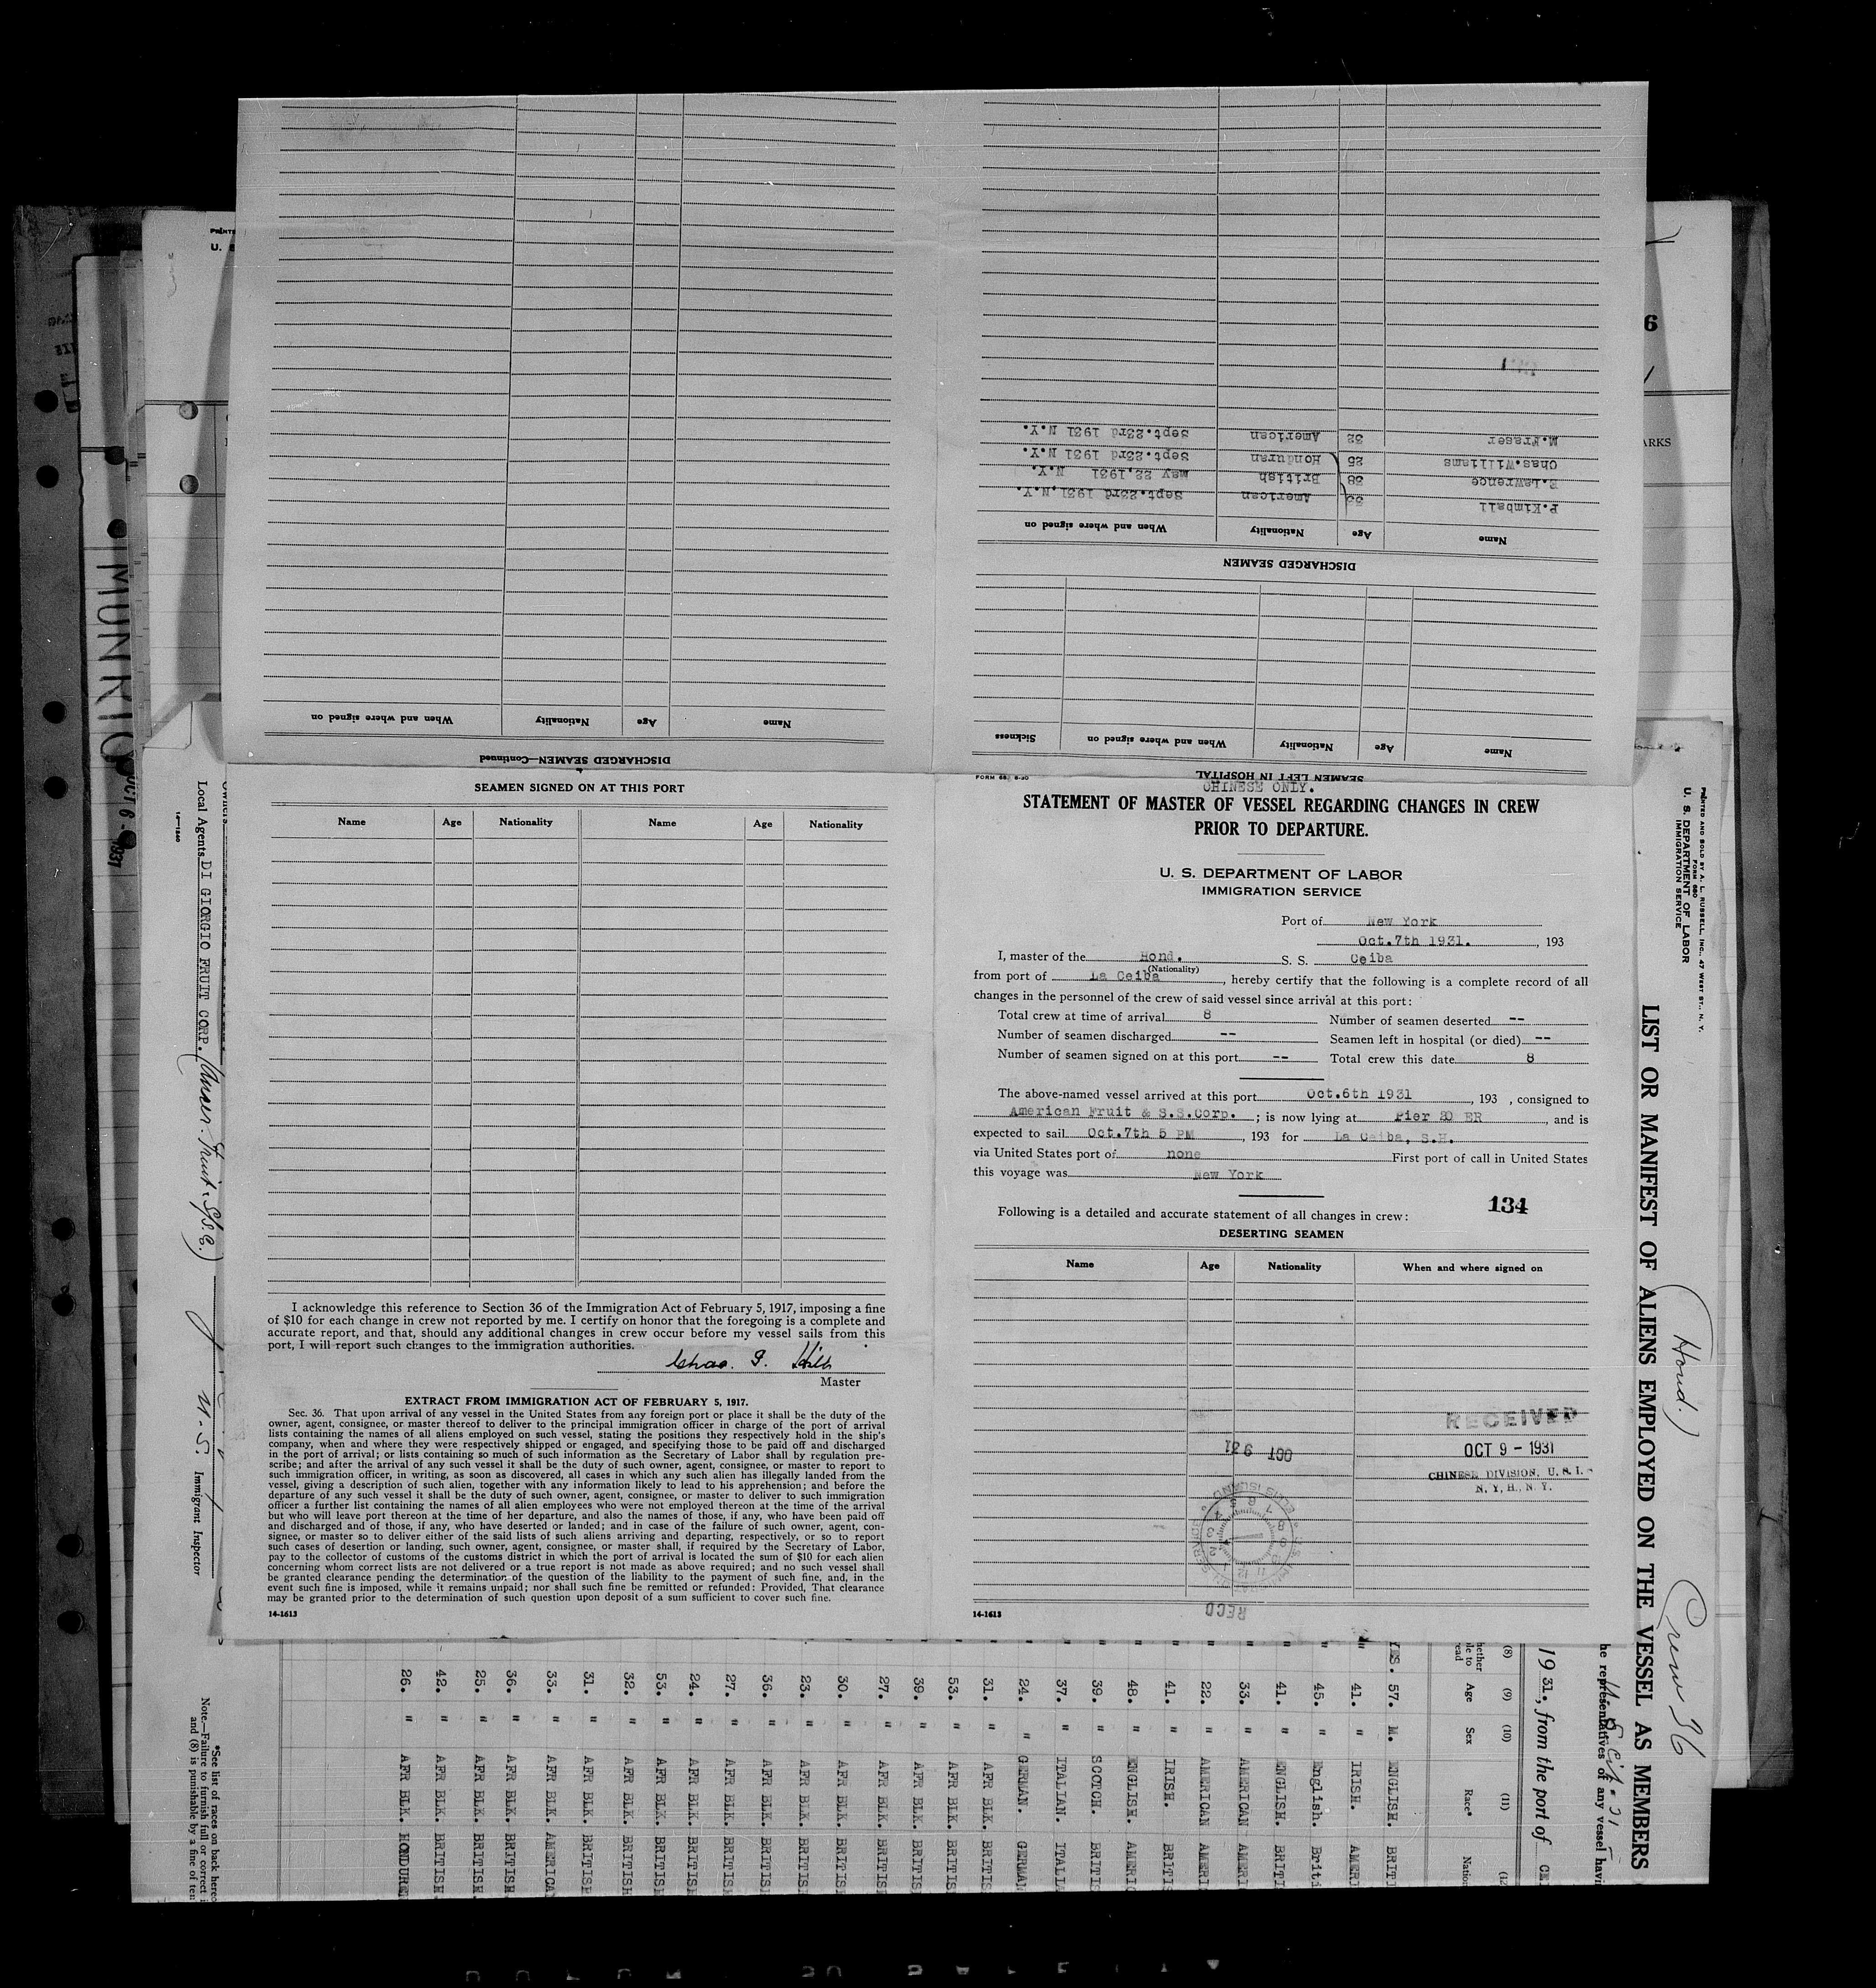 DISCHARGED SEAMEN—Continued
Name Age Nationality When and where signed on
SEAMEN LEFT IN HOSPITAL
Name Age Nationality When and where signed on Sickness
DISCHARGED SEAMEN
Name Age Nationality When and where signed on
P.Kimball American Sept.23rd 1931,N.Y.
E.Lawrence 38 British May 22,1931 N.Y.
Chas.Williams 25 Honduran Sept.23rd 1931 N.Y.
M.Fraser 32 American Sept.23rd 1931 N.Y.
SEAMEN SIGNED ON AT THIS PORT
Name Age Nationality Name Age Nationality
I acknowledge this reference to Section 36 of the Immigration Act of February 5, 1917, imposing a fine
of $10 for each change in crew not reported by me. I certify on honor that the foregoing is a complete and
accurate report, and that, should any additional changes in crew occur before my vessel sails from this
port, I will report such changes to the immigration authorities.
Chas. G. Hill
Master
EXTRACT FROM IMMIGRATION ACT OF FEBRUARY 5, 1917.
Sec. 36. That upon arrival of any vessel in the United States from any foreign port or place it shall be the duty of the
owner, agent, consignee, or master thereof to deliver to the principal immigration officer in charge of the port of arrival
lists containing the names of all aliens employed on such vessel, stating the positions they respectively hold in the ship's
company, when and where they were respectively shipped or engaged, and specifying those to be paid off and discharged
in the port of arrival; or lists containing so much of such information as the Secretary of Labor shall by regulation pre-
scribe; and after the arrival of any such vessel it shall be the duty of such owner, agent, consignee, or master to report to
such immigration officer, in writing, as soon as discovered, all cases in which any such alien has illegally landed from the
vessel, giving a description of such alien, together with any information likely to lead to his apprehension; and before the
departure of any such vessel it shall be the duty of such owner, agent, consignee, or master to deliver to such immigration
officer a further list containing the names of all alien employees who were not employed thereon at the time of the arrival
but who will leave port thereon at the time of her departure, and also the names of those, if any, who have been paid off
and discharged and of those, if any, who have deserted or landed; and in case of the failure of such owner, agent, con-
signee, or master so to deliver either of the said lists of such aliens arriving and departing, respectively, or so to report
such cases of desertion or landing, such owner, agent, consignee, or master shall, if required by the Secretary of Labor,
pay to the collector of customs of the customs district in which the port of arrival is located the sum of $10 for each alien
concerning whom correct lists are not delivered or a true report is not made as above required; and no such vessel shall
be granted clearance pending the determination of the question of the liability to the payment of such fine, and, in the
event such fine is imposed, while it remains unpaid; nor shall such fine be remitted or refunded: Provided, That clearance
may be granted prior to the determination of such question upon deposit of a sum sufficient to cover such fine.
14-1613
FORM 68
CHINESE ONLY.
STATEMENT OF MASTER OF VESSEL REGARDING CHANGES IN CREW
PRIOR TO DEPARTURE.
U. S. DEPARTMENT OF LABOR
IMMIGRATION SERVICE
Port of New York
Oct.7th 1931. , 193
I, master of the Hond. S. S. Ceiba
(Nationality)
from port of La Ceiba , hereby certify that the following is a complete record of all
changes in the personnel of the crew of said vessel since arrival at this port:
Total crew at time of arrival 8 Number of seamen deserted --
Number of seamen discharged -- Seamen left in hospital (or died) --
Number of seamen signed on at this port -- Total crew this date 8
The above-named vessel arrived at this port Oct.6th 1931 , 193 , consigned to
American Fruit & S.S.Corp. ; is now lying at Pier 20 ER , and is
expected to sail Oct.7th 5 PM , 193 for La Ceiba, S.H.
via United States port of none First port of call in United States
this voyage was New York
134
Following is a detailed and accurate statement of all changes in crew:
DESERTING SEAMEN
Name Age Nationality When and where signed on
RECEIVED
OCT 9 - 1931
CHINESE DIVISION, U. S. I.
N. Y. H., N. Y.
RECD
14-1613
MUNRIO
OCT 6 - 1931
Local Agents DI GIORGIO FRUIT CORP. (Amer. Fruit & S/S. C.)
U. S. Immigrant Inspector
14-1240
*See list of races on back
Note.—Failure to furnish full or correct
and (8) is punishable by a fine of ten
PRINTED AND SOLD BY A. L. RUSSELL, INC., 47 WEST ST., N. Y.
FORM 680
U. S. DEPARTMENT OF LABOR
IMMIGRATION SERVICE
LIST OR MANIFEST OF ALIENS EMPLOYED ON THE VESSEL AS MEMBERS
(Hond.)
Crew 36
representatives of any vessel
1931, from the port of
(8) (9) (10) (11)
Age Sex Race*
YES. 57. M. ENGLISH. BRITI
" 41. " IRISH. AMERI
" 45. " English. Briti
41. " ENGLISH. BRITI
33. " AMERICAN AMERI
22. " AMERICAN AMERI
41. " IRISH. BRITIS
48. " ENGLISH. AMERIC
39. " SCOTCH. BRITIS
37. " ITALIAN. ITALIA
24. " GERMAN. GERMAN
31. " AFR BLK. BRITIS
53. " AFR BLK. BRITIS
39. " AFR BLK. BRITIS
27. " AFR BLK. BRITIS
30. " AFR BLK. BRITIS
23. " AFR BLK. BRITIS
36. " AFR BLK. BRITIS
27. " AFR BLK. BRITIS
24. " AFR BLK. BRITIS
53. " AFR BLK. BRITIS
32. " AFR BLK. BRITISH
31. " AFR BLK. BRITISH
33. " AFR BLK. AMERICA
36. " AFR BLK. BRITISH
25. " AFR BLK. BRITISH
42. " AFR BLK. BRITISH
26. " AFR BLK. HONDURE